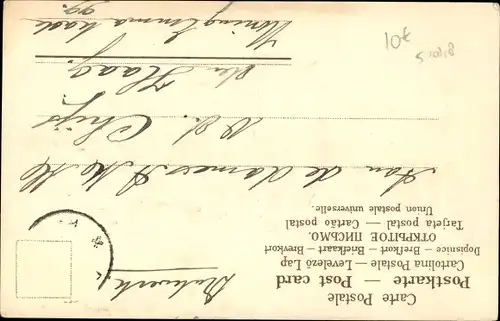 Carte Postale
Postkarte — Post card
Cartolina Postale — Levelező Lap
Dopisnice — Brefkort — Briefkaart — Brevkort
ОТКРЫТОЕ ПИСЬМО.
Tarjeta postal — Cartão postal
Union postale universelle.
Drukwerk
Aan de dames
v. d. Chijs
den Haag.
Koningin Emma kade
10€